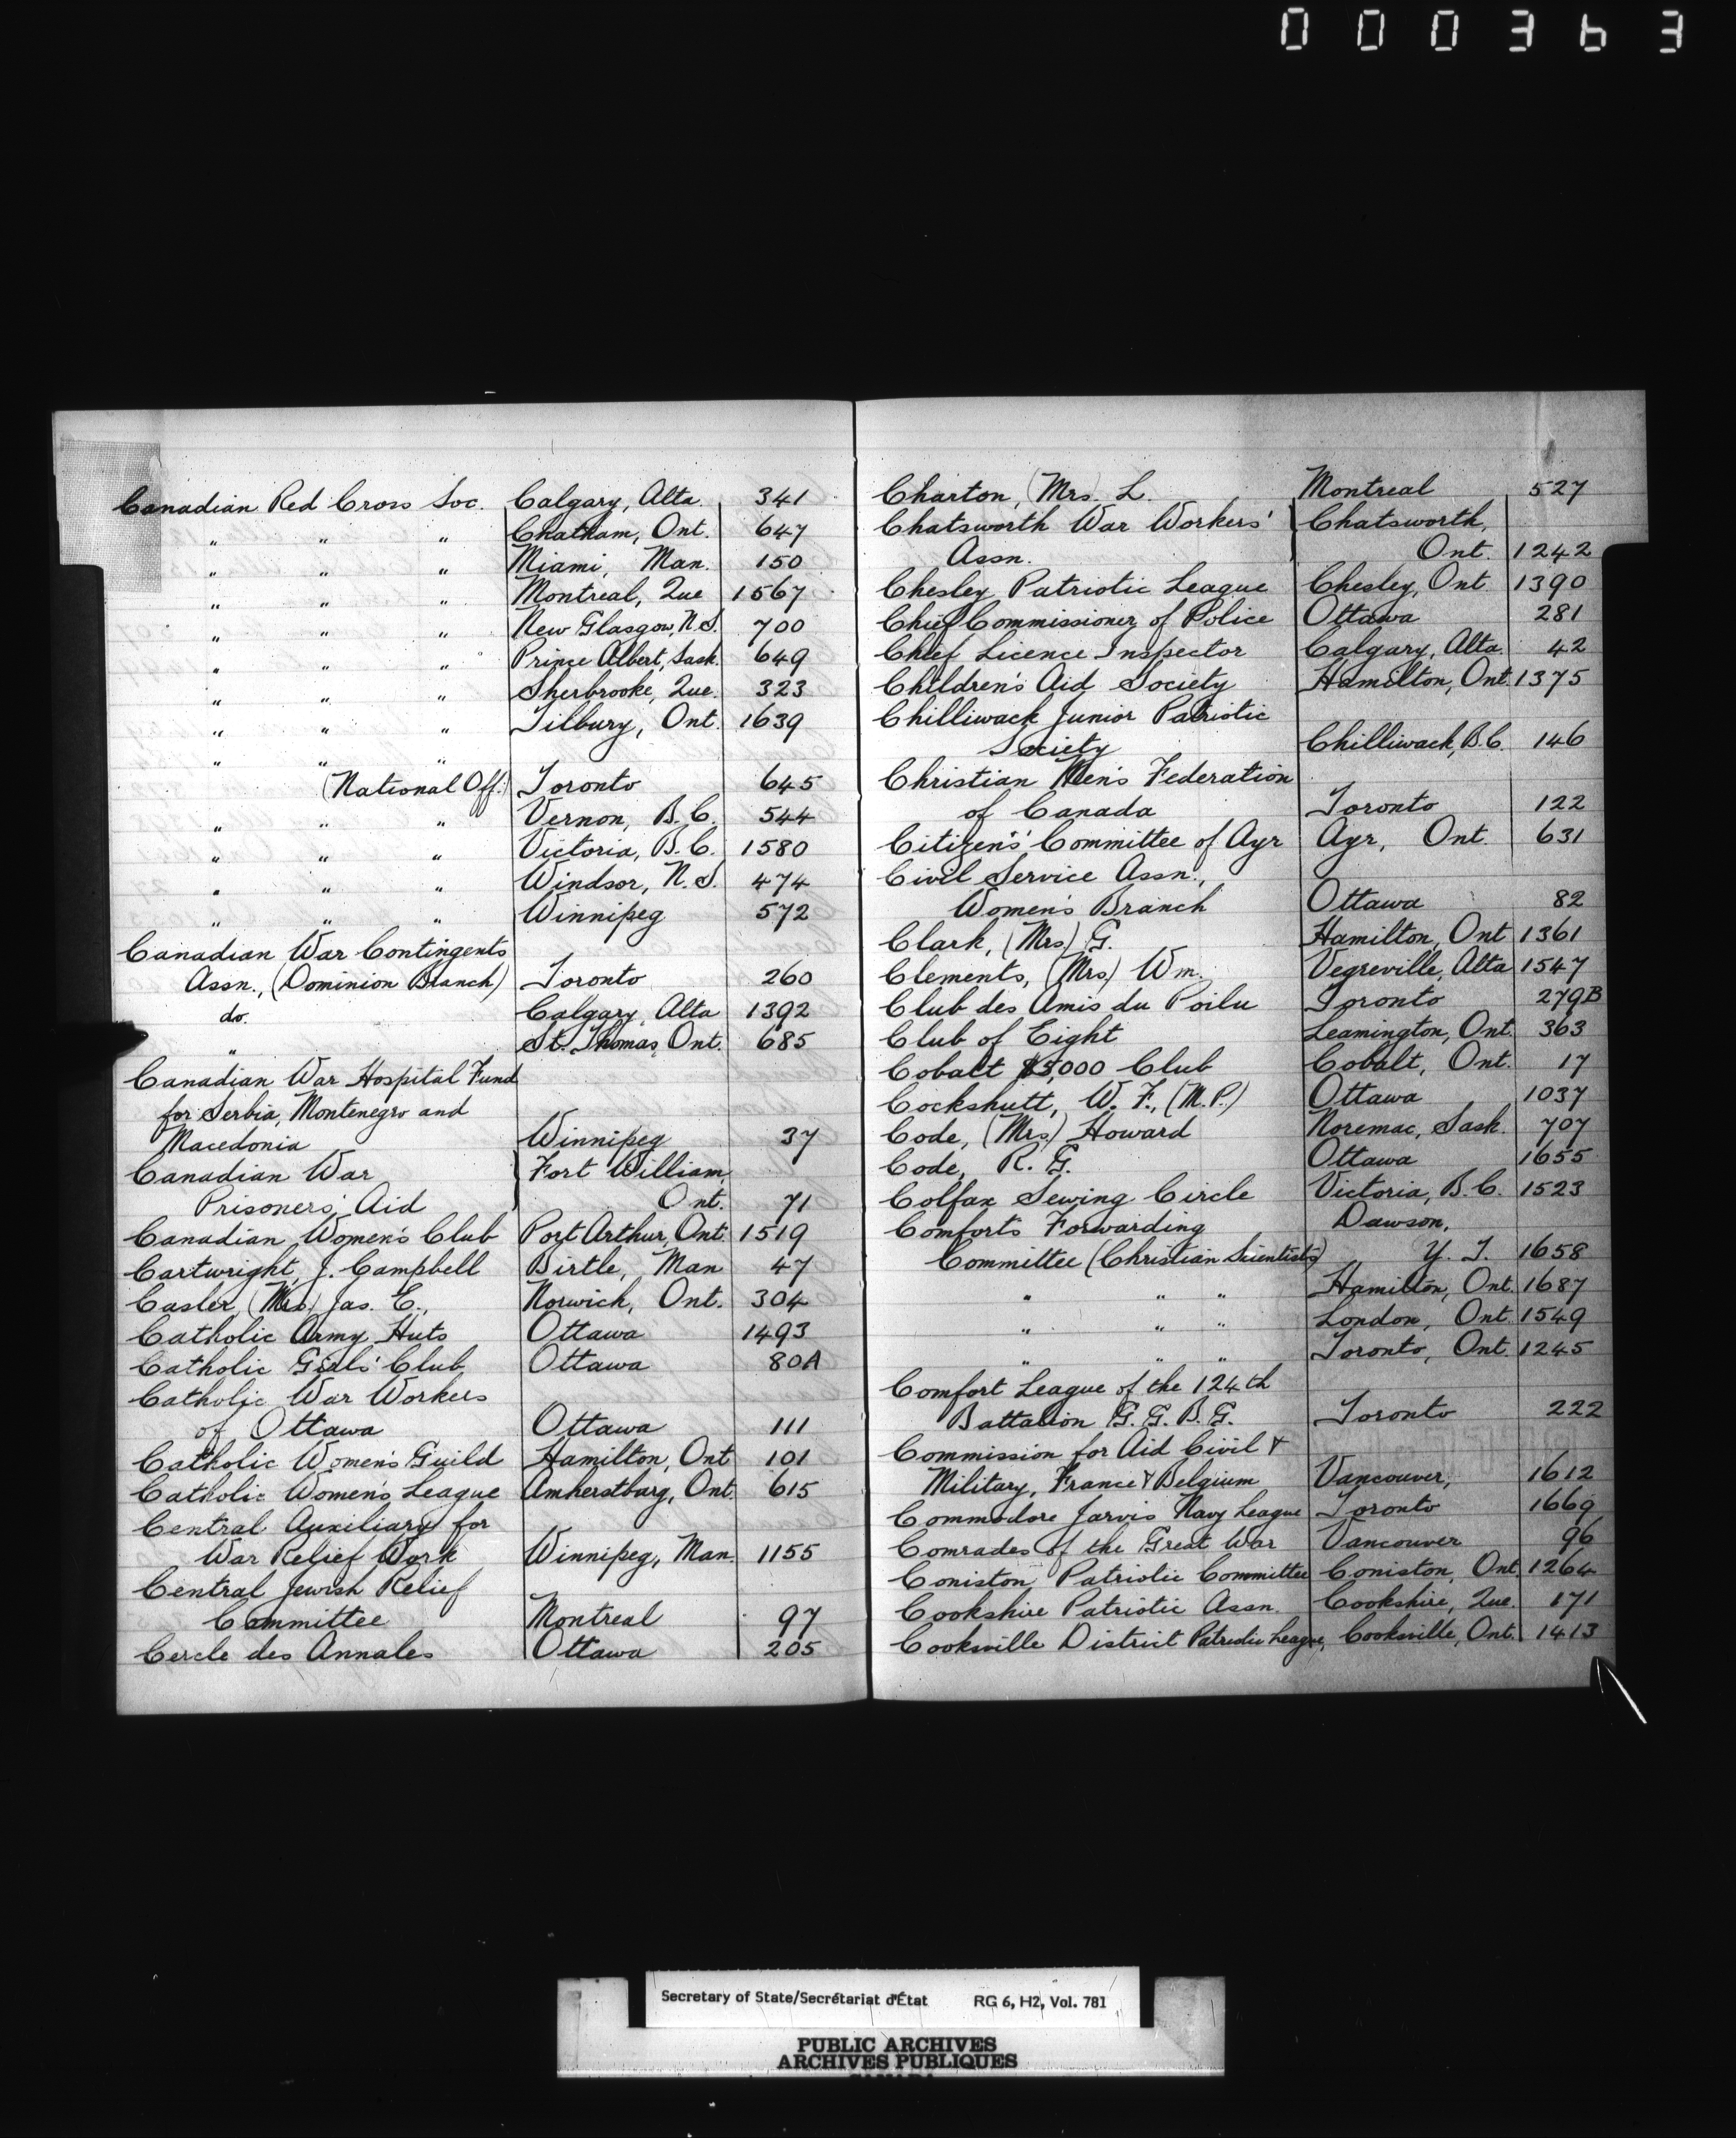 000363
Canadian Red Cross Soc. Calgary, Alta. 341
" " " Chatham, Ont. 647
" " " Miami, Man. 150
" " " Montreal, Que 1567
" " " New Glasgow, N.S. 700
" " " Prince Albert, Sask. 649
" " " Sherbrooke, Que. 323
" " " Tilbury, Ont. 1639
" " "
(National Off.) Toronto 645
" " " Vernon, B.C. 544
" " " Victoria, B.C. 1580
" " " Windsor, N.S. 474
" " " Winnipeg 572
Canadian War Contingents
Assn., (Dominion Branch) Toronto 260
do. Calgary, Alta 1392
" St. Thomas, Ont. 685
Canadian War Hospital Fund
for Serbia, Montenegro and
Macedonia Winnipeg 37
Canadian War Fort William,
Prisoners' Aid Ont. 71
Canadian Women's Club Port Arthur, Ont. 1519
Cartwright, J. Campbell Birtle, Man 47
Casler, (Mrs.) Jas. E., Norwich, Ont. 304
Catholic Army Huts Ottawa 1493
Catholic Girls' Club Ottawa 80A
Catholic War Workers
of Ottawa Ottawa 111
Catholic Women's Guild Hamilton, Ont 101
Catholic Women's League Amherstburg, Ont. 615
Central Auxiliary for
War Relief Work Winnipeg, Man. 1155
Central Jewish Relief
Committee Montreal 97
Cercle des Annales Ottawa 205
Charton, (Mrs.) L. Montreal 527
Chatsworth War Workers' Chatsworth,
Assn. Ont. 1242
Chesley Patriotic League Chesley, Ont. 1390
Chief Commissioner of Police Ottawa 281
Chief Licence Inspector Calgary, Alta. 42
Children's Aid Society Hamilton, Ont. 1375
Chilliwack Junior Patriotic
Society Chilliwack, B.C. 146
Christian Men's Federation
of Canada Toronto 122
Citizen's' Committee of Ayr Ayr, Ont. 631
Civil Service Assn.,
Women's Branch Ottawa 82
Clark, (Mrs) G. Hamilton, Ont 1361
Clements, (Mrs) Wm. Vegreville, Alta 1547
Club des Amis du Poilu Toronto 279B
Club of Eight Leamington, Ont. 363
Cobalt $5,000 Club Cobalt, Ont. 17
Cockshutt, W. F., (M.P.) Ottawa 1037
Code, (Mrs) Howard Noremac, Sask. 707
Code, R. G. Ottawa 1655
Colfax Sewing Circle Victoria, B.C. 1523
Comforts Forwarding Dawson,
Committee (Christian Scientists) Y. T. 1658
" " " Hamilton, Ont. 1687
" " " London, Ont. 1549
" " " Toronto, Ont. 1245
Comfort League of the 124th
Battalion G. G. B. G. Toronto 222
Commission for Aid Civil &
Military, France & Belgium Vancouver, 1612
Commodore Jarvis Navy League Toronto 1669
Comrades of the Great War Vancouver 96
Coniston Patriotic Committee Coniston, Ont. 1264
Cookshire Patriotic Assn. Cookshire, Que. 171
Cooksville District Patriotic League, Cooksville, Ont. 1413
Secretary of State/Secrétariat d'État RG 6, H2, Vol. 781
PUBLIC ARCHIVES
ARCHIVES PUBLIQUES